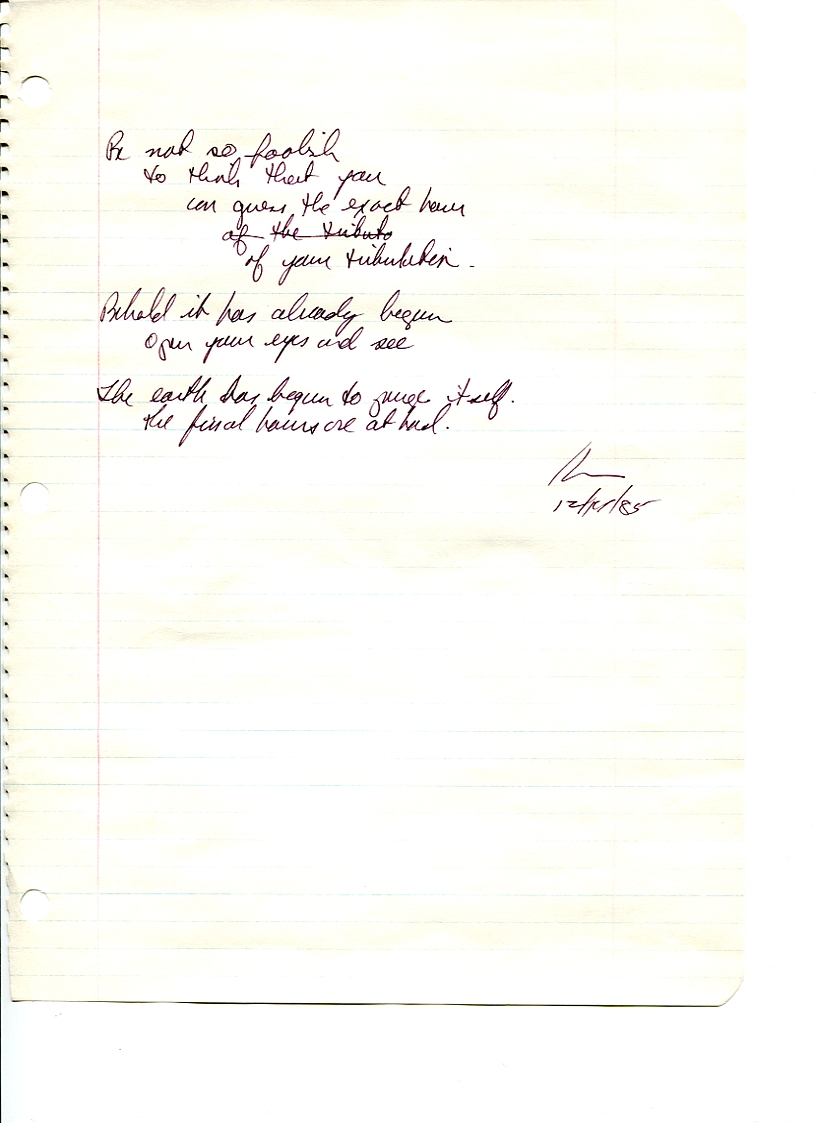 Be not so foolish
to think that you
can guess the exact hour
of the tributo
of your tribulation.
Behold it has already begun
Open your eyes and see
The earth has begun to purge itself.
the final hours are at hand.